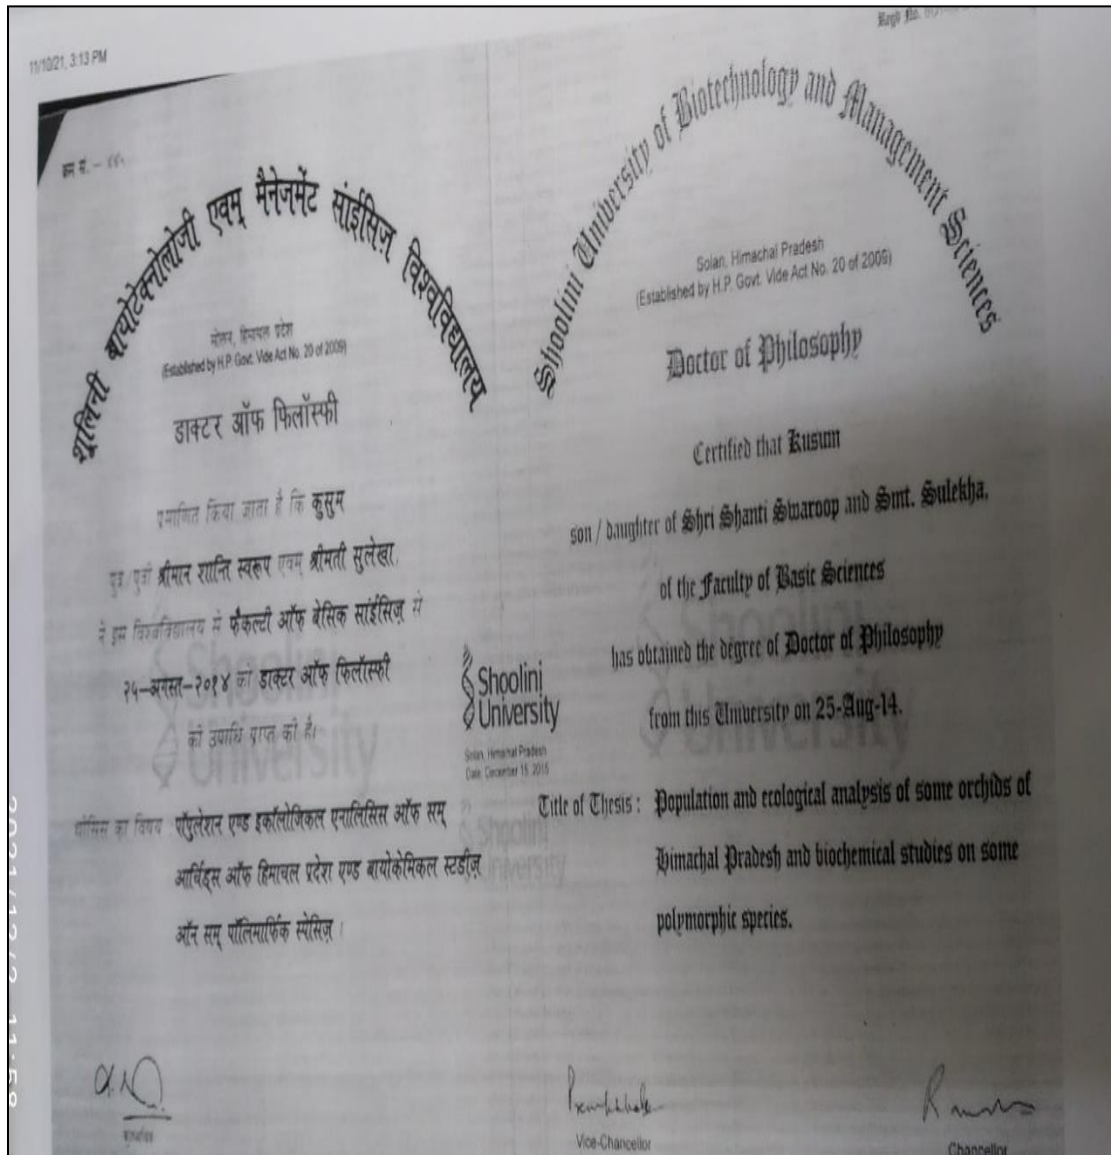 11/10/21, 3:13 PM
क्रम सं. –
शूलिनी बायोटेक्नोलोजी एवम् मैनेजमेंट सांईसिज़ विश्वविद्यालय
सोलन, हिमाचल प्रदेश
(Established by H.P. Govt. Vide Act No. 20 of 2009)
डाक्टर ऑफ फिलॉस्फी
प्रमाणित किया जाता है कि कुसुम
पुत्र/पुत्री श्रीमान शान्ति स्वरूप एवम् श्रीमती सुलेखा,
ने इस विश्वविद्यालय से फैकल्टी ऑफ बेसिक सांईसिज़ से
२५–अगस्त–२०१४ को डाक्टर ऑफ फिलॉस्फी
की उपाधि प्राप्त की है।
थीसिस का विषय पॉपुलेशन एण्ड इकॉलोजिकल एनालिसिस ऑफ सम्
आर्चिड्स ऑफ हिमाचल प्रदेश एण्ड बायोकेमिकल स्टडीज़
ऑन सम् पॉलिमार्फिक स्पेसिज़।
कुलसचिव
Shoolini
University
Solan, Himachal Pradesh
Date: December 15, 2015
Regd No.
Shoolini University of Biotechnology and Management Sciences
Solan, Himachal Pradesh
(Established by H.P. Govt. Vide Act No. 20 of 2009)
Doctor of Philosophy
Certified that Kusum
son / daughter of Shri Shanti Swaroop and Smt. Sulekha,
of the Faculty of Basic Sciences
has obtained the degree of Doctor of Philosophy
from this University on 25-Aug-14.
Title of Thesis : Population and ecological analysis of some orchids of
Himachal Pradesh and biochemical studies on some
polymorphic species.
Vice-Chancellor
Chancellor
Shoolini
University
Shoolini
University
Shoolini
University